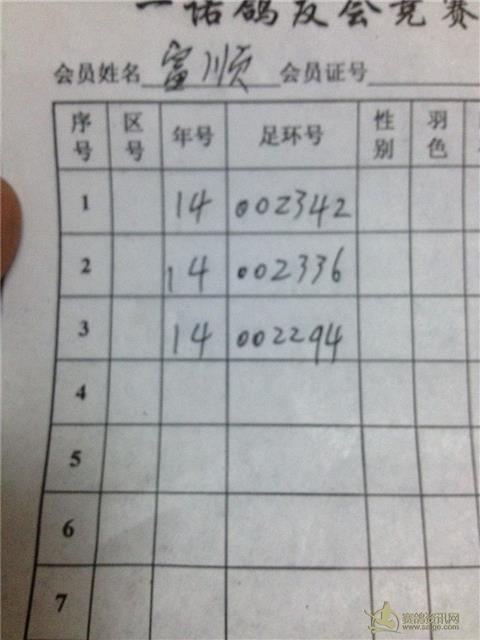 一诺鸽友会竞赛
会员姓名 富顺 会员证号
序号 区号 年号 足环号 性别 羽色
1 14 002342
2 14 002336
3 14 002294
4
5
6
7
赛鸽资讯网
www.saige.com